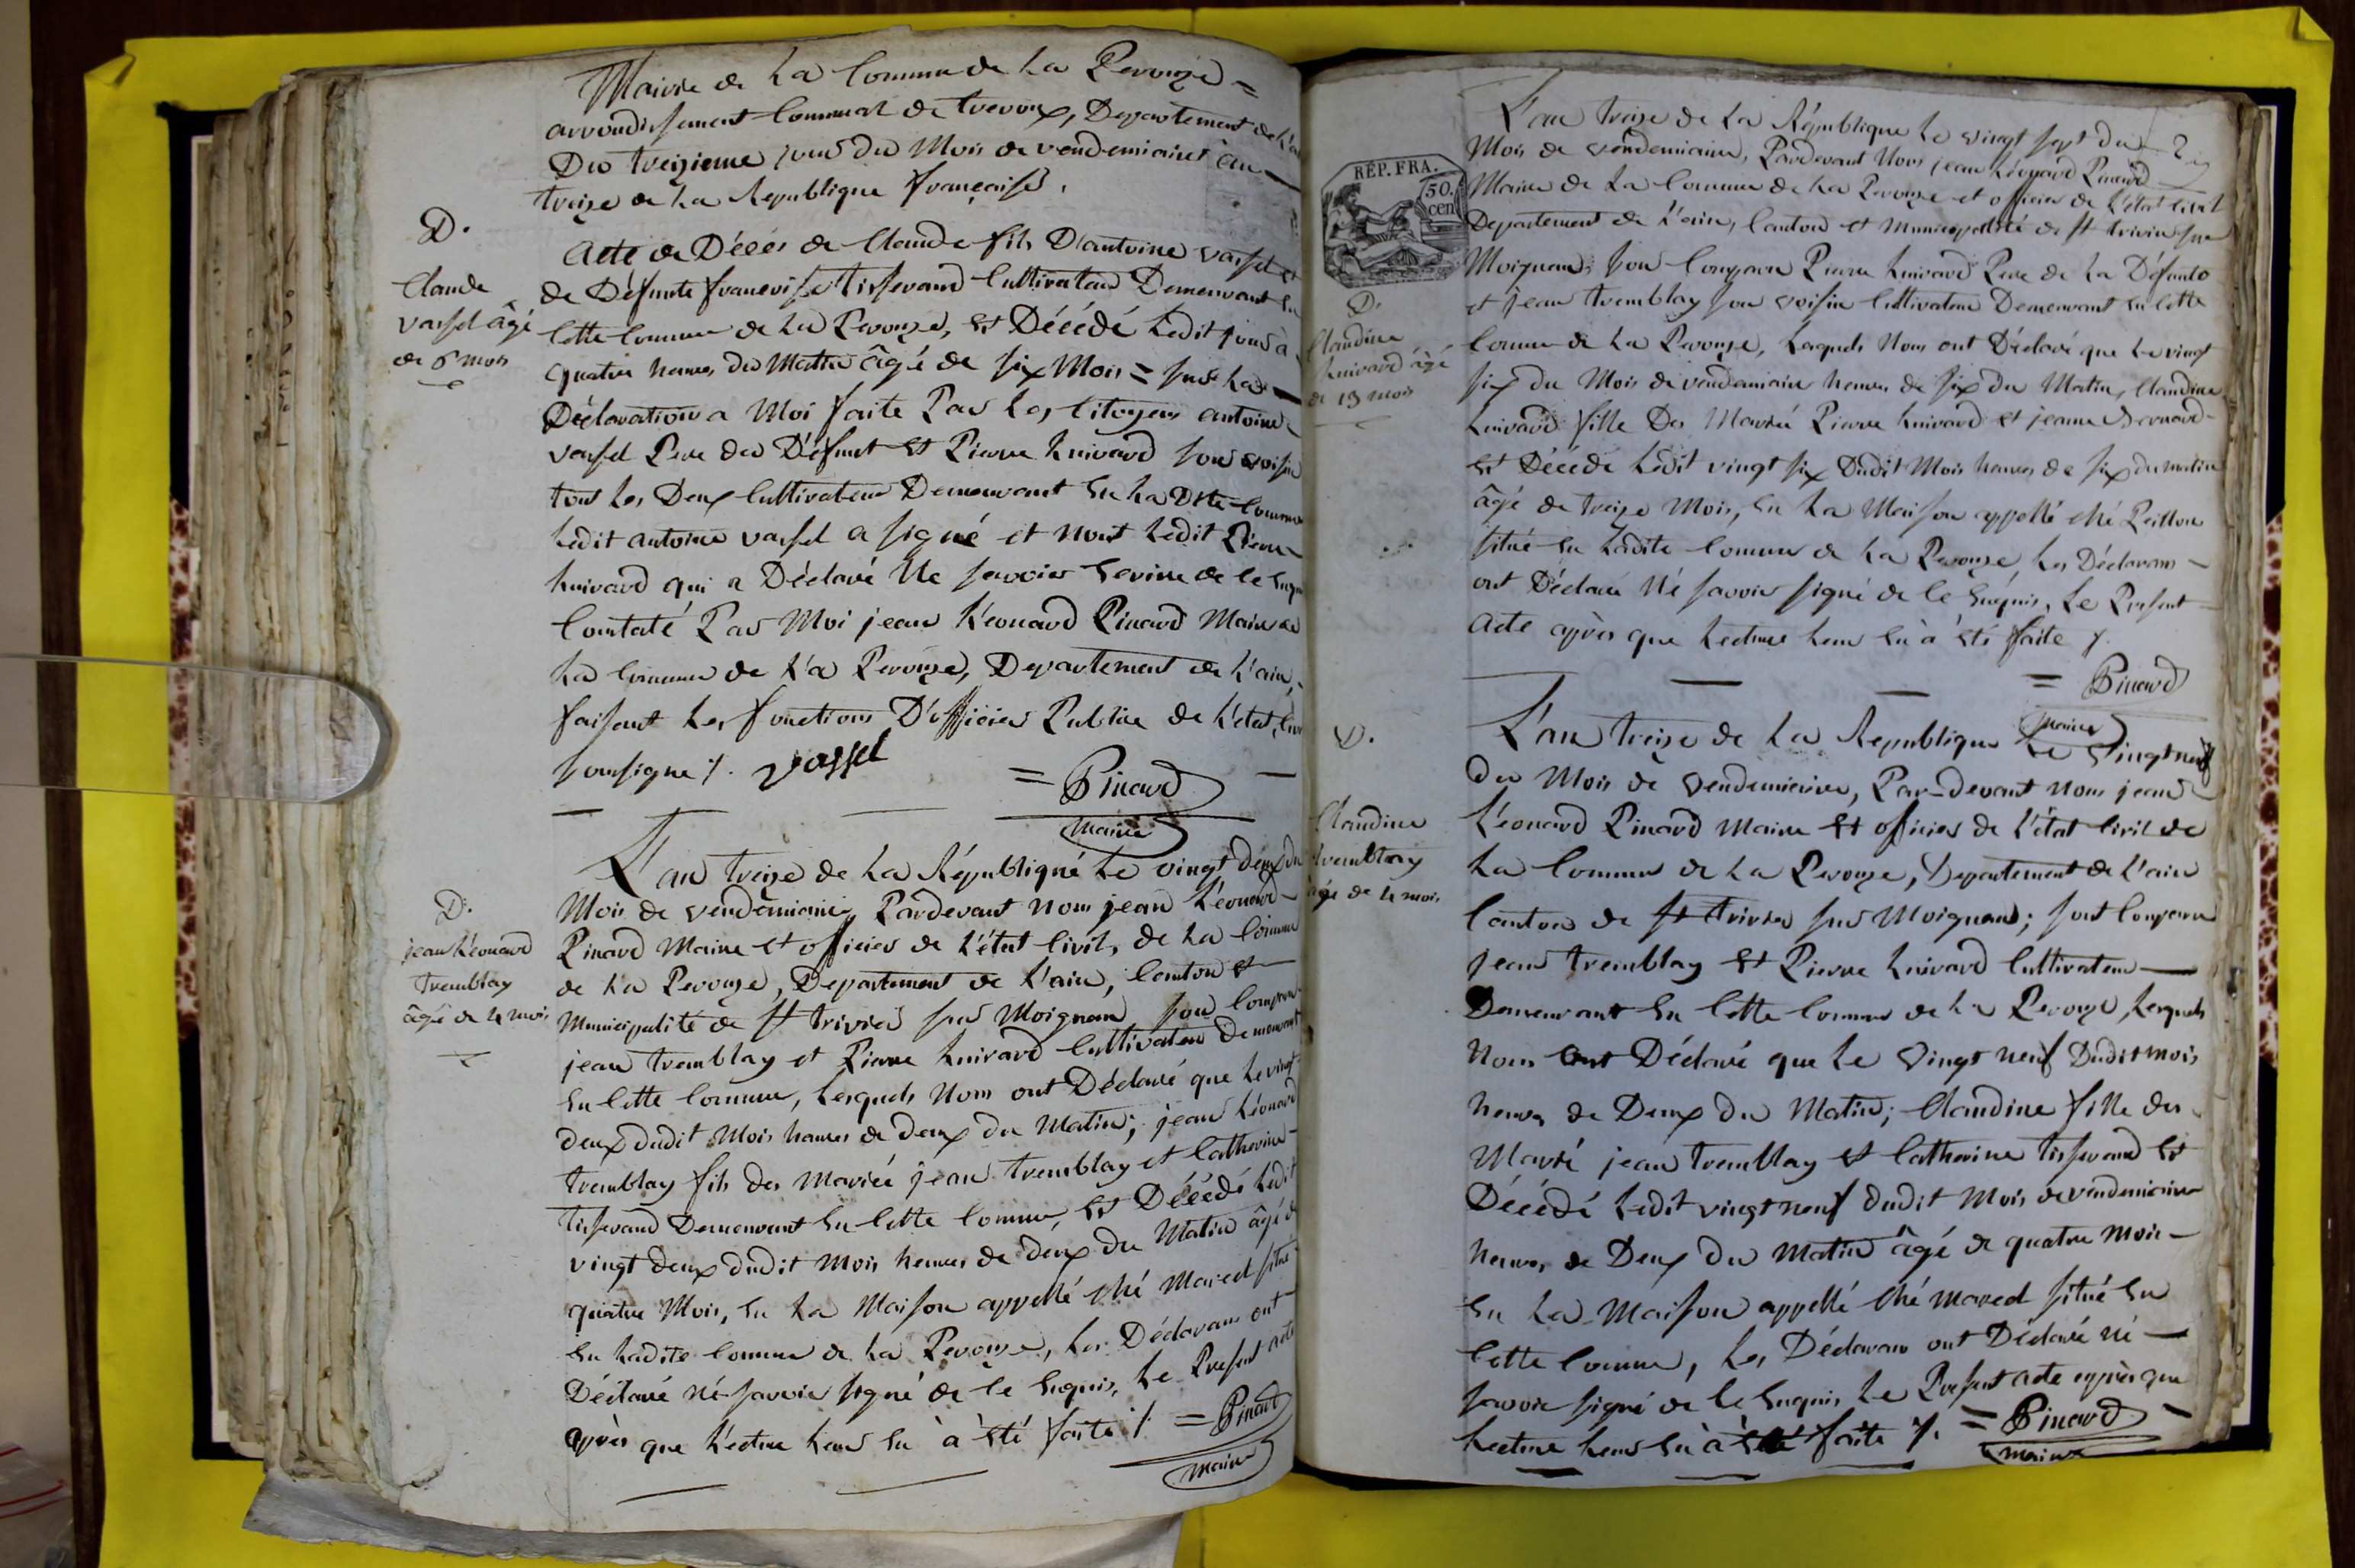 Mairie de La Commune de La Perouze =
arrondissement Communal de trevoux, Departement de L'ain
Du treizieme jour du Mois de vendemiaire an
treize de La Republique française.
D.
Claude
vassel âgé
de 6 mois
Acte de Décés de Claude fils D'antoine vassel et
de Défunte françoise tisserand Cultivateur Demeurant En
Cette Commune de La Perouze, Est Décédé Ledit jour à
quatre heures du Matin âgé de six Mois = sur La
Déclaration a Moi faite Par Les Citoyens antoine
vassel Pere du Défunt Et Pierre huivard son voisin
tous Les Deux Cultivateur Demeurant En La Dite Commune
Ledit antoine vassel a signé et nont Ledit Pierre
huivard qui a Déclaré Ne savoir Ecrire de Ce Enquis
Contaté Par Moi jean Léonard Pinard Maire de
La Commune de La Perouze, Departement de L'ain,
faisant Les fonctions D'officier Public de L'état Civil
soussigné ⁒. vassel = Pinard
maire
D.
jean Léonard
Tremblay
âgé de 4 mois
L'an treize de La Républiqué Le vingt deux du
Mois de vendémiaire, Pardevant nous jean Léonard
Pinard Maire et officier de L'état Civil, de La Commune
de La Perouze, Departement de L'ain, Canton et
Municipalité de St trivier sur Moignan, son Comparu
jean tremblay et Pierre huivard Cultivateur Demeurant
En Cette Commune, Lesquels Nous ont Déclaré que Le vingt
deux dudit Mois heures de deux du Matin; jean Léonard
tremblay fils des Mariéé jean tremblay et Catherine
tisserand Demeurant En Cette Commune, Est Décédé Ledit
vingt deux dudit Mois heures de deux du Matin âgé de
quatre Mois, En La Maison appellé ché Mared situé
En Ladite Commune de La Perouze, Les Déclarans ont
Déclaré né savoir signé de Ce Enquis, Le Present acte
après que Lecture Leur En à Eté faite ⁒ = Pinard
maire
RÉP. FRA.
50.
cen
D.
Claudine
huivard âgé
de 13 mois
L'an treize de La République Le vingt sept du
Mois de vendemiaire, Pardevant Nous jean Léonard Pinard
Maire de La Commune de La Perouze et officier de L'état Civil
Departement de L'ain, Canton et Municipalité de St trivier sur
Moignan; son Comparu Pierre huivard Pere de La Défunte
et jean tremblay son voisin Cultivateur Demeurant En Cette
Comune de La Perouze, Lesquels Nous ont Déclaré que Le vingt
six du Mois de vendemiaire heures de six du Matin, Claudine
huivard fille Des Marièé Pierre huivard et jeanne Bernard
Est Décédé Ledit vingt six Dudit Mois heures de six du matin
âgé de treize Mois, En La Maison appellé ché Peillon
situé En Ladite Commune de La Perouze, Les Déclarans
ont Déclaré Né savoir signé de Ce Enquis, Le Present
Acte après que Lecture Leur En à Eté faite ⁒.
= Pinard
maire
D.
Claudine
tremblay
âgé de 4 mois
L'an treize de La Republique Le Vingt neuf
du Mois de Vendemiaire, Par-devant nous jean
Léonard Pinard Maire Et officier de L'état Civil de
La Commune de La Perouze, Departement de L'ain
Canton de St trivier sur Moignan; sont Comparu
jean tremblay Et Pierre huivard Cultivateur
Demeurant En Cette Commune de La Perouze, Lesquels
Nous ont Déclaré que Le Vingt neuf Dudit mois
heures de Deux du Matin; Claudine fille des
Marié jean tremblay et Catherine tisserand Est
Décédé Ledit vingt neuf dudit Mois de vendemiaire
heures de Deux du Matin âgé de quatre Mois
En La Maison appellé ché mared situé En
Cette Commune, Les Déclarans ont Déclaré né
savoir signé de Ce Enquis Le Present acte après que
Lecture Leur En à Eté faite ⁒. = Pinard
maire